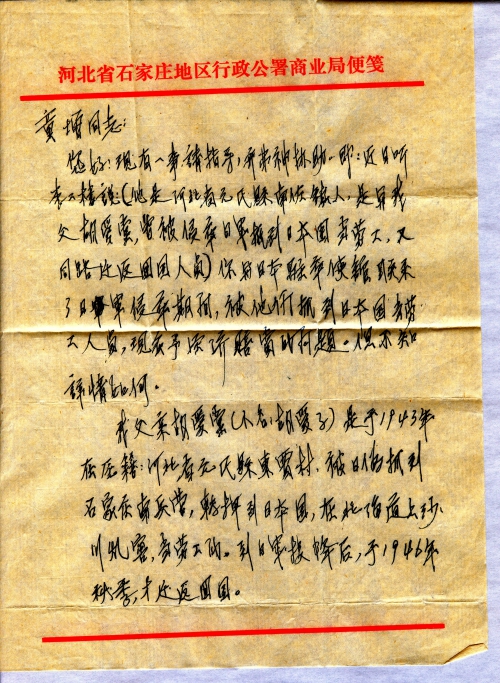 河北省石家庄地区行政公署商业局便笺
黄 同志:
您好:现有一事请指导,并求神协助。即:近日听
李 禄说(他是河北省元氏縣南佐鎮人,是与我
父胡 雲,曾被侵華日軍抓到日本国当劳工,又
同路还返回国人员)你与日本駐華使館联系
了日軍侵華期间,被他们抓到日本国当劳
工人员,现在予经济賠賞的问题。但不知
詳情如何。
我父亲胡 雲(小名:胡 子)是于1943年
在原籍:河北省元氏縣東 村,被日伪抓到
石家庄南兵营,轉 到日本国,在北海道上砂
川 ,当劳工的。到日軍投降后,于1946年
秋季,才还返回国。